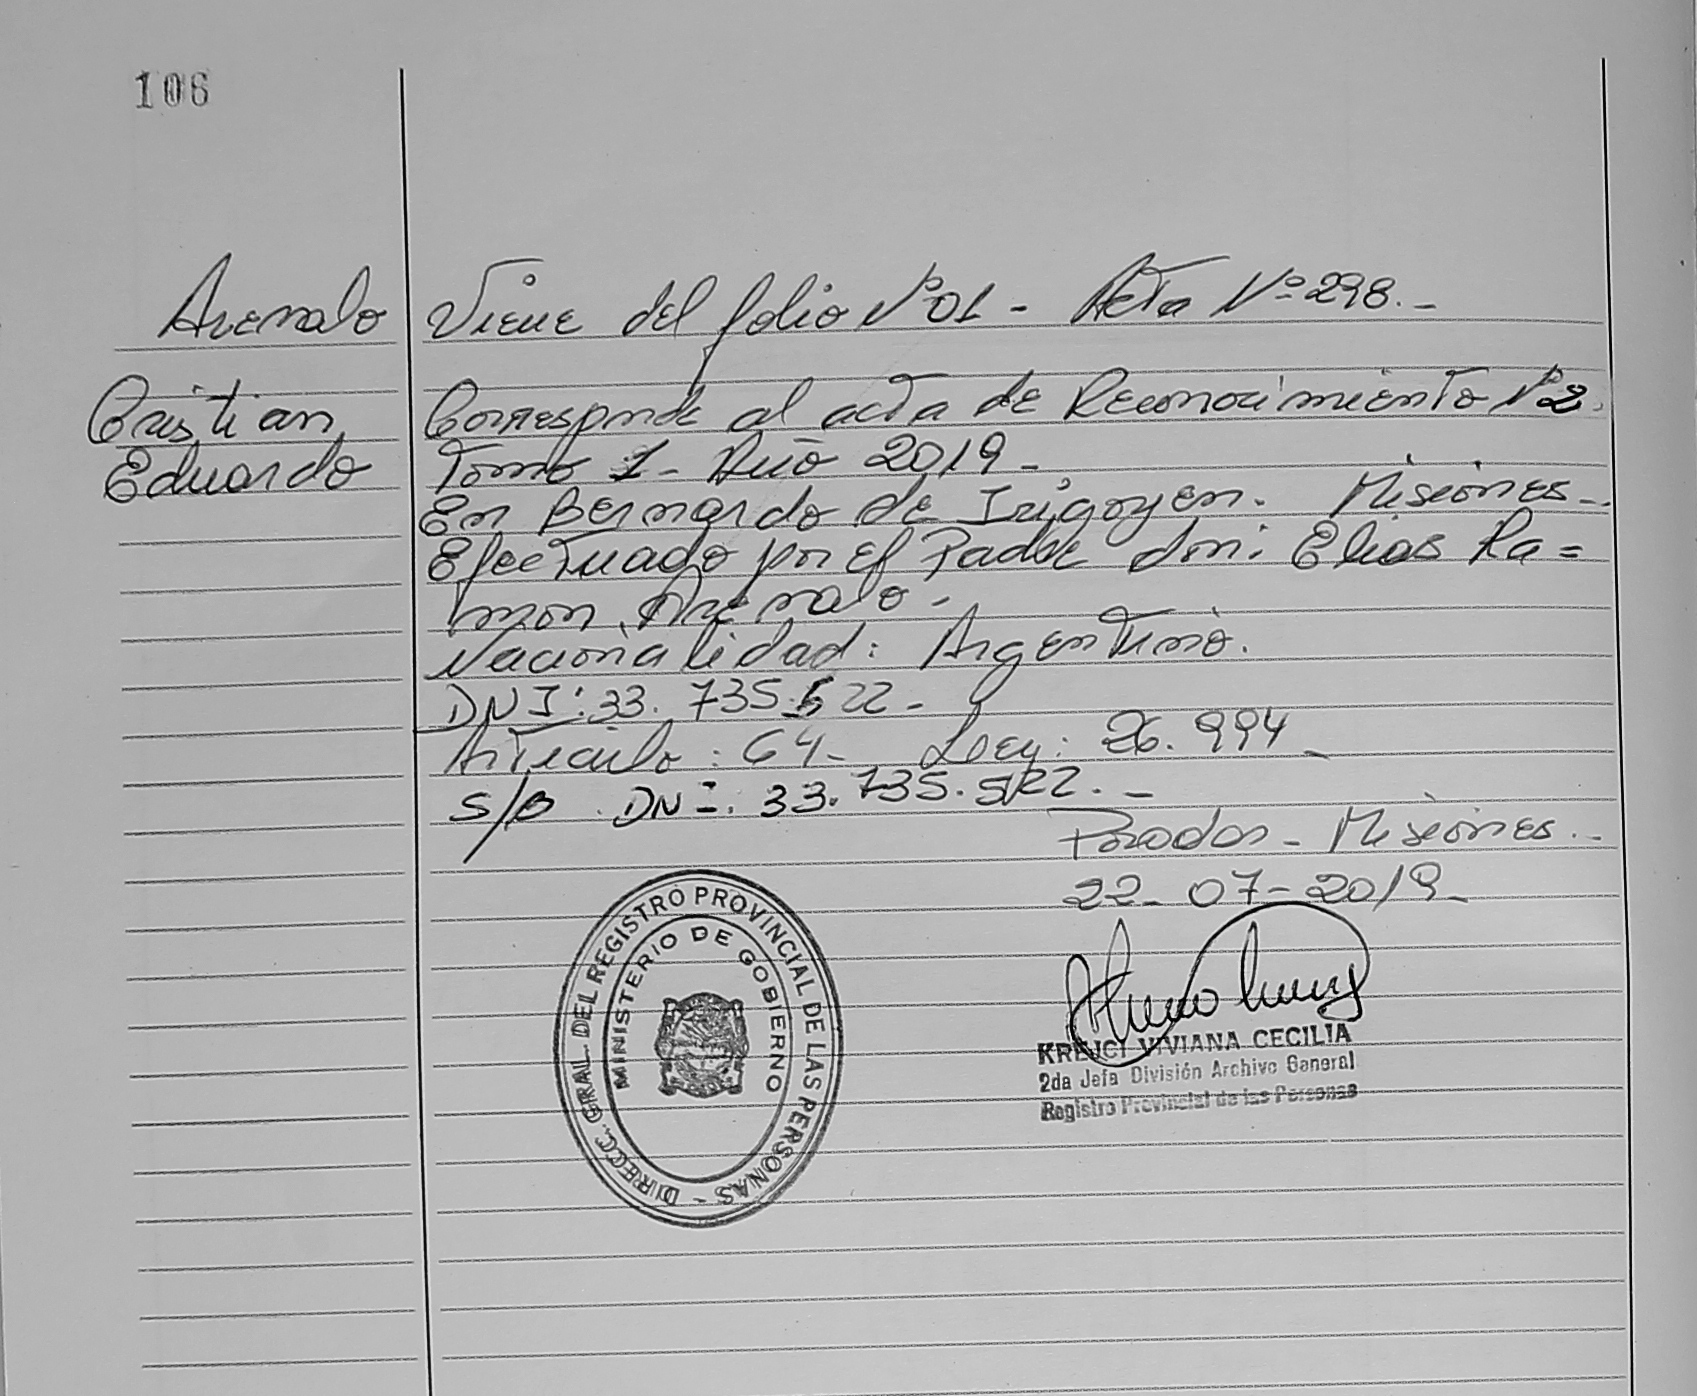 106
Arenalo
Viene del folio Nº 01 - Acta Nº 298.-
Cristian
Eduardo
Corresponde al acta de Reconocimiento Nº 2.
Tomo 1 - Año 2019 -
En Bernardo de Irigoyen. Misiones -
Efectuado por el Padre don: Elias Ra=
mon Arenalo -
Nacionalidad: Argentino.
DNI: 33.735.522 -
Articulo: 64 - Ley: 26.994 -
S/B DNI: 33.735.522. -
Posadas - Misiones. -
22-07-2019 -
DIRECC. GRAL. DEL REGISTRO PROVINCIAL DE LAS PERSONAS -
MINISTERIO DE GOBIERNO
KREJCI VIVIANA CECILIA
2da Jefa División Archivo General
Registro Provincial de las Personas